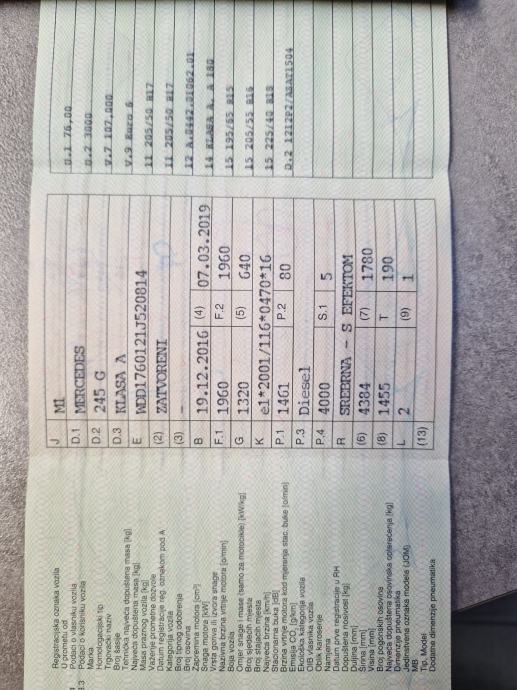 J M1
D.1 MERCEDES
D.2 245 G
D.3 KLASA A
E WDD1760121J520814
(2) ZATVORENI
(3) -
B 19.12.2016 (4) 07.03.2019
F.1 1960 F.2 1960
G 1320 (5) 640
K e1*2001/116*0470*16
P.1 1461 P.2 80
P.3 Diesel
P.4 4000 S.1 5
R SREBRNA - S EFEKTOM
(6) 4384 (7) 1780
(8) 1455 T 190
L 2 (9) 1
(13)
U.1 76,00
U.2 3000
V.7 107,000
V.9 Euro 6
11 205/50 R17
11 205/50 R17
12 A.0442.01062.01
14 KLASA A, A 180
15 195/65 R15
15 205/55 R16
15 225/40 R18
D.2 1212P2/A5AT1504
Registracijska oznaka vozila
U prometu od
Podaci o vlasniku vozila
Podaci o korisniku vozila
Marka
Homologacijski tip
Trgovački naziv
Broj šasije
Tehnička najveća dopuštena masa [kg]
Najveća dopuštena masa [kg]
Masa praznog vozila [kg]
Važenje prometne dozvole
Datum registracije reg. oznakom pod A
Kategorija vozila
Broj tipnog odobrenja
Broj osovina
Zapremina motora [cm³]
Snaga motora [kW]
Vrsta goriva ili izvora snage
Nazivna brzina vrtnje motora [o/min]
Boja vozila
Omjer snage i mase (samo za motocikle) [kW/kg]
Broj sjedaćih mjesta
Broj stajaćih mjesta
Najveća brzina [km/h]
Stacionarna buka [dB]
Brzina vrtnje motora kod mjerenja stac. buke [o/min]
Emisija CO₂ [g/km]
Ekološka kategorija vozila
OIB vlasnika vozila
Oblik karoserije
Namjena
Datum prve registracije u RH
Dopuštena nosivost [kg]
Duljina [mm]
Širina [mm]
Visina [mm]
Broj pogonskih osovina
Najveća dopuštena osovinska opterećenja [kg]
Dimenzije pneumatika
Jedinstvena oznaka modela (JOM)
MB
Tip, Model
Dodatne dimenzije pneumatika